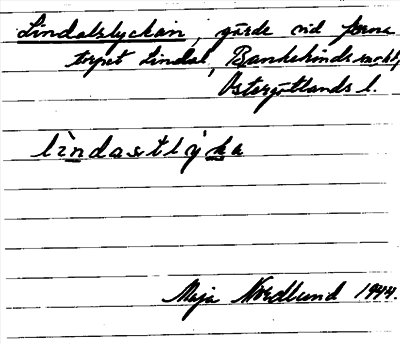 Lindalslyckan, gärde vid förra
torpet Lindal, Bankekinds sockn,
Östergötlands l.
lìndastlýka
Maja Nordlund 1944.